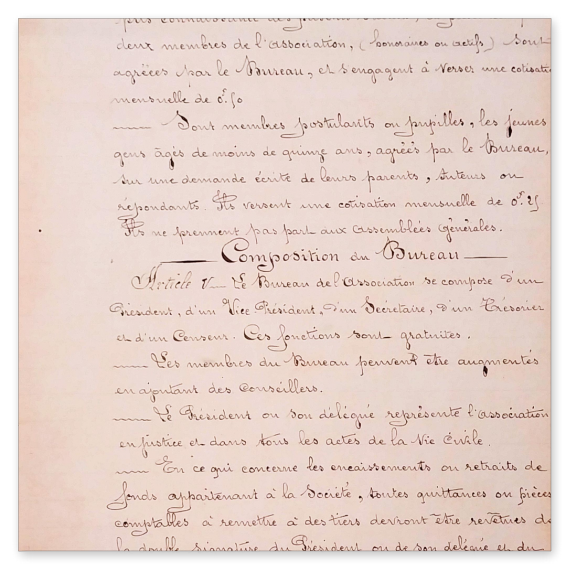 plus connaissance des
deux membres de l'association, (honoraires ou actifs) sont
agréées par le Bureau, et s'engagent à verser une cotisation
mensuelle de 0f.50
—— Sont membres postulants ou pupilles, les jeunes
gens âgés de moins de quinze ans, agréés par le Bureau,
sur une demande écrite de leurs parents, tuteurs ou
répondants. Ils versent une cotisation mensuelle de 0f.25
Ils ne prennent pas part aux assemblées générales.
—— Composition du Bureau ——
Article V — Le Bureau de l'Association se compose d'un
Président, d'un Vice Président, d'un Secrétaire, d'un Trésorier
et d'un Censeur. Ces fonctions sont gratuites.
—— Les membres du Bureau peuvent être augmentés
en ajoutant des Conseillers.
—— Le Président ou son délégué représente l'association
en justice et dans tous les actes de la Vie Civile.
—— En ce qui concerne les encaissements ou retraits de
fonds appartenant à la Société, toutes quittances ou pièces
comptables à remettre à des tiers devront être revêtues de
la double signature du Président ou de son délégué et du